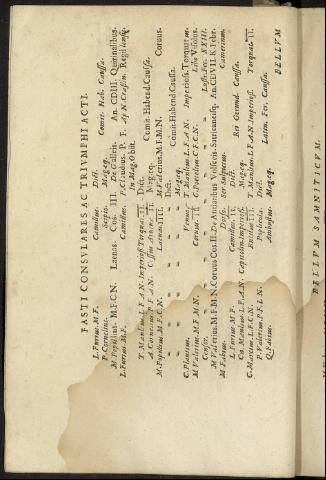 FASTI CONSVLARES AC TRIVMPHI ACTI.
L. Furius M. F. Camillus. Dict. Comit. Hab. Caussa.
P. Cornelius. Scipio. Mag. eq.
M. Popilius M. F. C. N. Laenas. Cos. III. De Galleis. An. CDIII. Quirinalibus.
L. Furius M. F. Camillus. P. Claudius. P. F.
In Mag. Obiit.
T. Manlius L. F. A. N. Imperiosus Torquat. II. Dict. Comit. Habend. Caussa.
A. Cornelius P. F. A. N. Cossus Mag. eq.
M. Popilius M. F. C. N. Laenas IIII. M. Valerius M. F. M. N. Corvus.
Dict. Comit. Habend. Caussa.
Mag. eq.
C. Plautius. Venno. T. Manlius L. F. A. N. Imperiosus. Torquat.
M. Valerius M. F. M. N. Corvus. II. C. Poetelius C. F. C. N. Libo Visolus.
Censor. Lustr. Fec. XXIII.
M. Valerius M. F. M. N. Corvus Cos. III. De Antiatibus Volsceis. Satricaneisq. An. CDVII. K. Febr.
M. Fabius. Dorso. Ser. Sulpicius. Camerinus.
L. Furius M. F. Camillus. II. Dict. Rei Gerund. Caussa.
Cn. Manlius L. F. A. N. Capitolin. Imperioss. Mag. eq.
C. Marcius L. F. C. N. Rutilus. III. T. Manlius L. F. A. N. Imperioss. Torquat. II.
P. Valerius P. F. L. N. Poplicola. Dict. Latin. Fer. Caussa.
Q. Fabius. Ambustus. Mag. eq.
BELLVM
BELLVM SAMNITICVM.